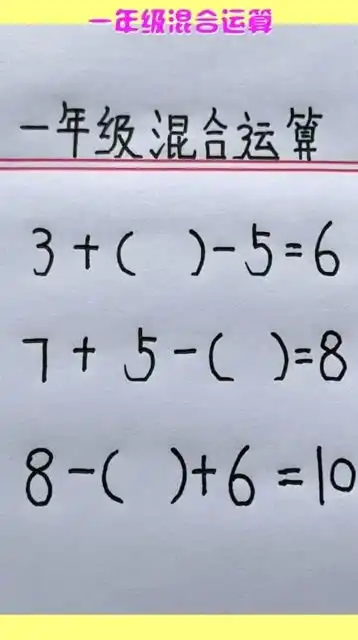 一年级混合运算
一年级混合运算
3+( )-5=6
7+ 5-( )=8
8-( )+6=10